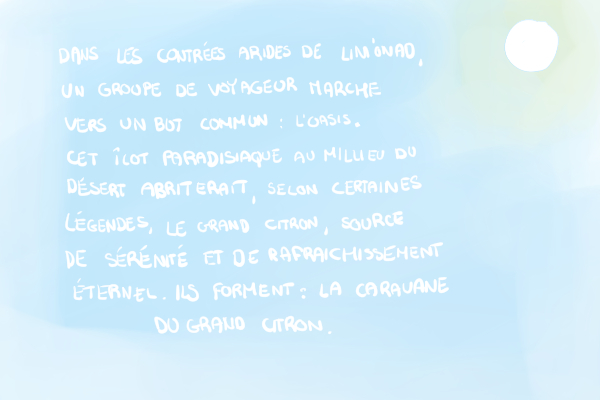 DANS LES CONTRÉES ARIDES DE LIM'ONAD,
UN GROUPE DE VOYAGEUR MARCHE
VERS UN BUT COMMUN : L'OASIS.
CET ÎLOT PARADISIAQUE AU MILIEU DU
DÉSERT ABRITERAIT, SELON CERTAINES
LÉGENDES, LE GRAND CITRON, SOURCE
DE SÉRÉNITÉ ET DE RAFRAICHISSEMENT
ÉTERNEL. ILS FORMENT : LA CARAVANE
DU GRAND CITRON.